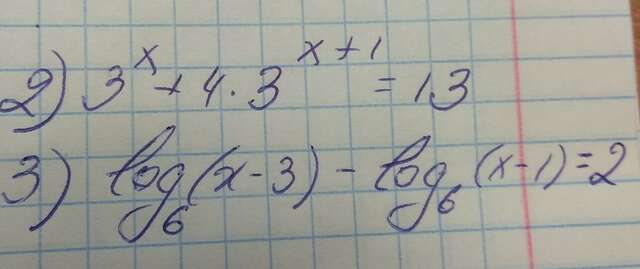 2) 3^x + 4 · 3^(x+1) = 13
3) log₆(x-3) - log₆(x-1) = 2